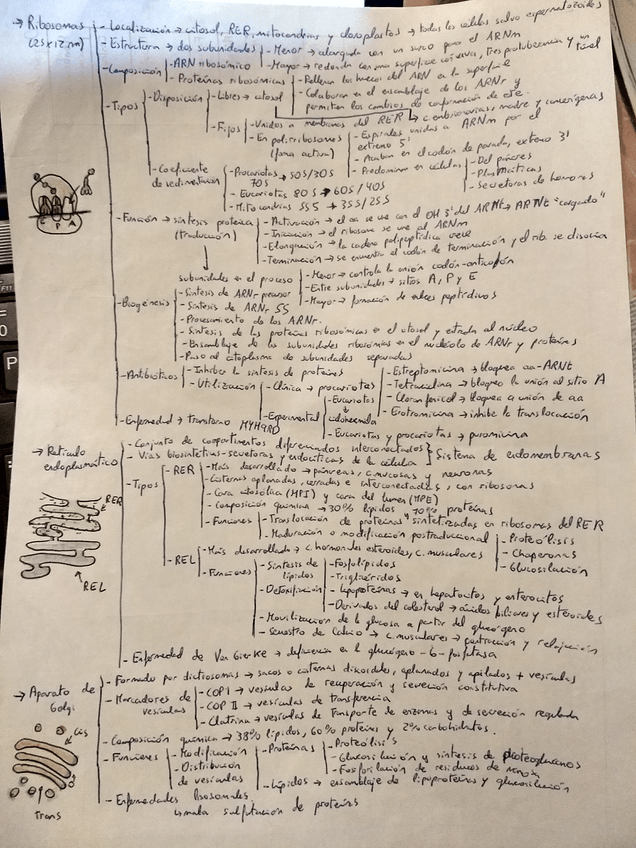 → Ribosomas
(25x12nm)
- Localización → citosol, RER, mitocondrias y cloroplastos → todas las células salvo espermatozoides
- Estructura → dos subunidades
- Menor → alargada con un surco para el ARNm
- Mayor → redonda con una superficie cóncava, tres protuberancias y un túnel
- Composición
- ARN ribosómico
- Proteínas ribosómicas
- Rellenan los huecos del ARN en la superficie
- Colaboran en el ensamblaje de los ARNr y
permiten los cambios de conformación de este.
- Tipos
- Disposición
- Libres → citosol
→ C. embrionarias, madre y cancerígenas
- Fijos
- Unidos a membrana del RER
- En polirribosomas
(forma activa)
- Espirales unidas a ARNm por el
extremo 5'
- Acaban en el codón de parada, extremo 3'
- Predominan en células
- Del páncreas
- Plasmáticas
- Secretoras de hormonas
- Coeficiente
de sedimentación
- Procariotas → 50S/30S
70S
- Eucariotas 80S → 60S/40S
- Mitocondrias 55S → 35S/25S
E P A
- Función → síntesis proteica
(traducción)
- Activación → el aa se une con el OH 3' del ARNt → ARNt "cargado"
- Iniciación → el ribosoma se une al ARNm
- Elongación → la cadena polipeptídica crece
- Terminación → se encuentra el codón de terminación y el rib. se disocia
subunidades en el proceso
- Menor → controla la unión codón-anticodón
- Entre subunidades → sitios A, P y E
- Mayor → formación de enlaces peptídicos
- Biogénesis
- Síntesis de ARNr precursor
- Síntesis de ARNr 5S
- Procesamiento de los ARNr.
- Síntesis de las proteínas ribosómicas en el citosol y entrada al núcleo
- Ensamblaje de las subunidades ribosómicas en el nucléolo de ARNr y proteínas
- Paso al citoplasma de subunidades separadas
- Antibióticos
- Inhiben la síntesis de proteínas
- Utilización
- Clínica → procariotas
- Estreptomicina → bloquea aa-ARNt
- Tetraciclina → bloquea la unión al sitio A
- Cloranfenicol → bloquea la unión de aa
- Eritromicina → inhibe la translocación
- Experimental
- Eucariotas
↓
cicloheximida
- Eucariotas y procariotas → puromicina
- Enfermedad → trastorno MYH9RD
→ Retículo
endoplasmático
- Conjunto de compartimentos diferenciados interconectados
- Vías biosintéticas-secretoras y endocíticas de la célula
Sistema de endomembranas
RER
REL
- Tipos
- RER
- Más desarrollado → páncreas, c. mucosas y neuronas
- Cisternas aplanadas, cerradas e interconectadas, con ribosomas
- Cara citosólica (MPI) y cara del lumen (MPE)
- Composición química → 30% lípidos y 70% proteínas
- Funciones
- Translocación de proteínas sintetizadas en ribosomas del RER
- Maduración o modificación postraduccional
- Proteólisis
- Chaperonas
- Glucosilación
- REL
- Más desarrollado → c. hormonas esteroides, c. musculares
- Funciones
- Síntesis de
lípidos
- Fosfolípidos
- Triglicéridos
- Lipoproteínas → en hepatocitos y enterocitos
- Derivados del colesterol → ácidos biliares y esteroides
- Detoxificación
- Movilización de la glucosa a partir del glucógeno
- Secuestro de Calcio → c. musculares → contracción y relajación
- Enfermedad de Von Gierke → deficiencia en la glucógeno-6-fosfatasa
→ Aparato de
Golgi
cis
Trans
- Formado por dictiosomas → sacos o cisternas discoidales, aplanados y apilados + vesículas
- Marcadores de
vesículas
- COP I → vesículas de recuperación y secreción constitutiva
- COP II → vesículas de transferencia
- Clatrina → vesículas de transporte de enzimas y de secreción regulada
- Composición química → 38% lípidos, 60% proteínas y 2% carbohidratos.
- Funciones
- Modificación
- Distribución
de vesículas
- Proteínas
- Proteólisis
- Glucosilación y síntesis de proteoglucanos
- Fosforilación de residuos de manosa
- Lípidos → ensamblaje de lipoproteínas y glucosilación
- Enfermedades lisosomales
↳ mala sulfatación de proteínas